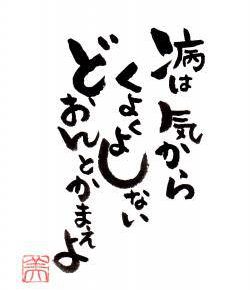 病は
気から
くよくよしない
どおんとかまえよ
美